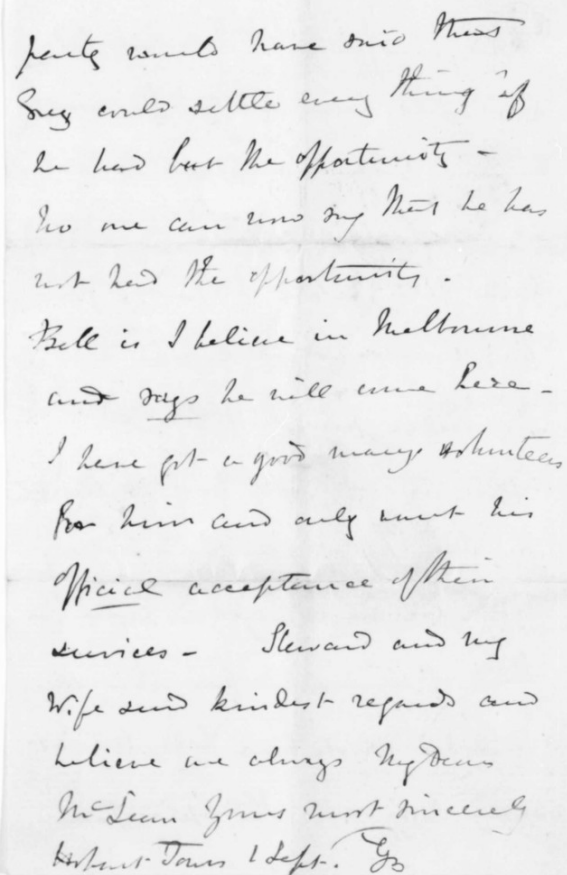 party would have said that
Grey could settle every thing "if
he had but the opportunity -
No one can now say that he has
not had the opportunity.
Bell is I believe in Melbourne
and says he will come here -
I have got a good many volunteers
for him and only want his
official acceptance of their
services - Steward and my
Wife send kindest regards and
believe me always My dear
McLean Yours most sincerely
Hobart Town 1 Sept.